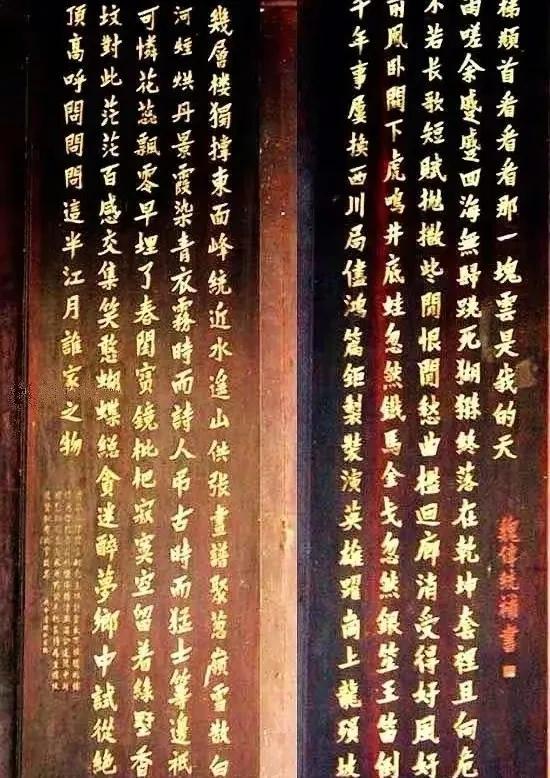 幾層楼獨撐東面峰統近水遙山供張畫譜聚葱嶺雪散白
河煙烘丹景霞染青衣霧時而詩人弔古時而猛士籌邊祇
可憐花蕊飄零早埋了春閨寶鏡枇杷寂寞空留着綠墅香
坟對此茫茫百感交集笑憨蝴蝶總貪迷醉夢鄉中試從絕
頂高呼問問問這半江月誰家之物
千年事屢換西川局儘鴻篇鉅製裝演英雄躍崗上龍殞坡
前鳳卧關下虎鳴井底蛙忽然鐵馬金戈忽然銀笙玉笛倒
不若長歌短賦抛撒些閒恨閒愁曲檻回廊消受得好風好
雨嗟余蹙蹙四海無歸跳死猢猻終落在乾坤套裡且向危
梯頫首看看看那一塊雲是我的天
魏傳統補書